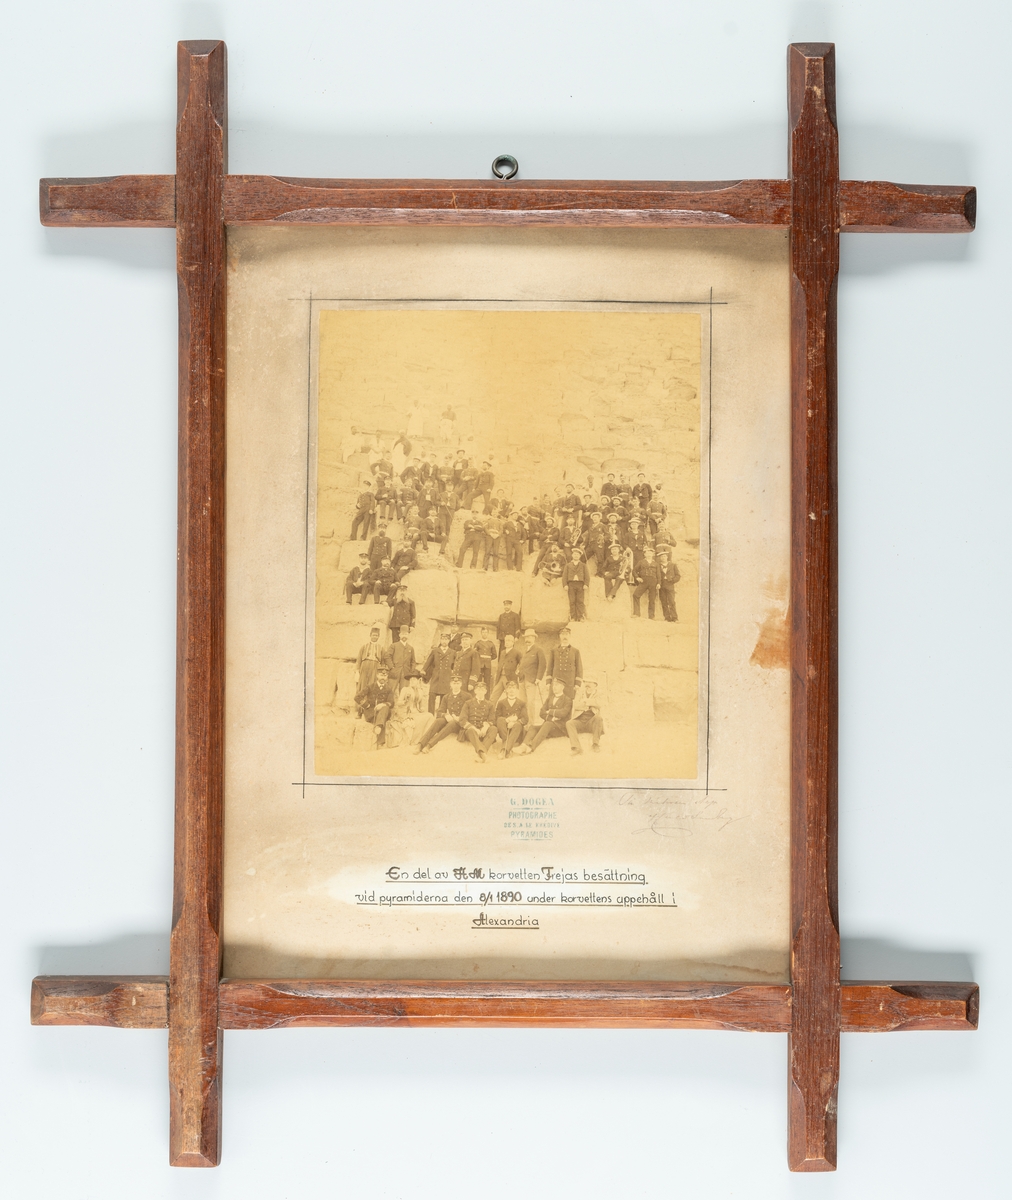 G. DOGEA
PHOTOGRAPHE
PYRAMIDES
En del av HM korvetten Frejas besättning,
vid pyramiderna den 8/1 1890 under korvettens uppehåll i
Alexandria